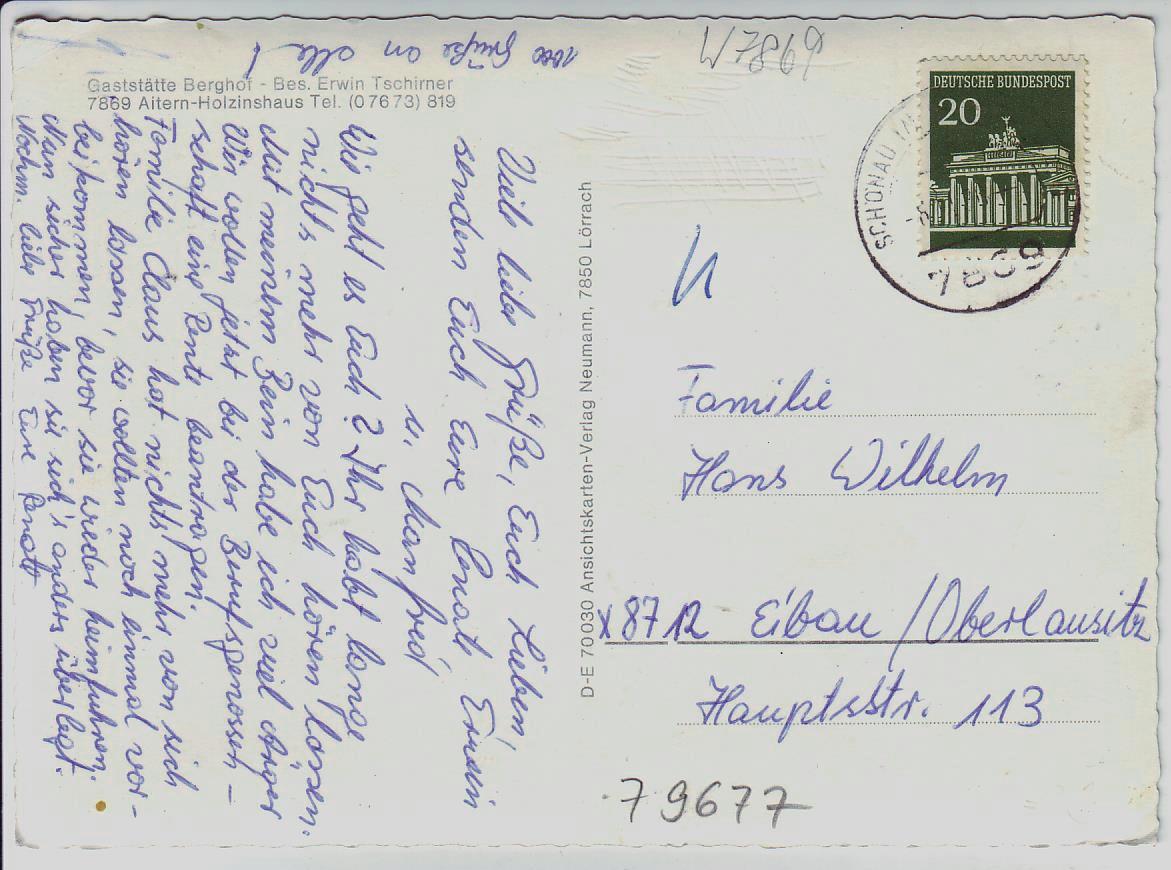 1000 Grüße an alle!
W7869
Gaststätte Berghof - Bes. Erwin Tschirner
7869 Aitern-Holzinshaus Tel. (07673) 819
Viele liebe Grüße, Euch Lieben,
senden Euch Eure Renate, Erwin
u. Manfred
Wie geht es Euch? Ihr habt lange
nichts mehr von Euch hören lassen.
Mit meinem Bein habe ich viel Ärger
Wir wollen jetzt bei der Berufsgenossen-
schaft eine Rente beantragen.
Familie Claus hat nichts mehr von sich
hören lassen, sie wollten noch einmal vor-
beikommen, bevor sie wieder heimfuhren.
Nun sicher haben sie sich's anders überlegt.
Nochm. liebe Grüße Eure Renate
D-E 70 030 Ansichtskarten-Verlag Neumann, 7850 Lörrach
DEUTSCHE BUNDESPOST
20
SCHÖNAU
7869
Familie
Hans Wilhelm
X8712 Eibau/Oberlausitz
Hauptsstr. 113
79677